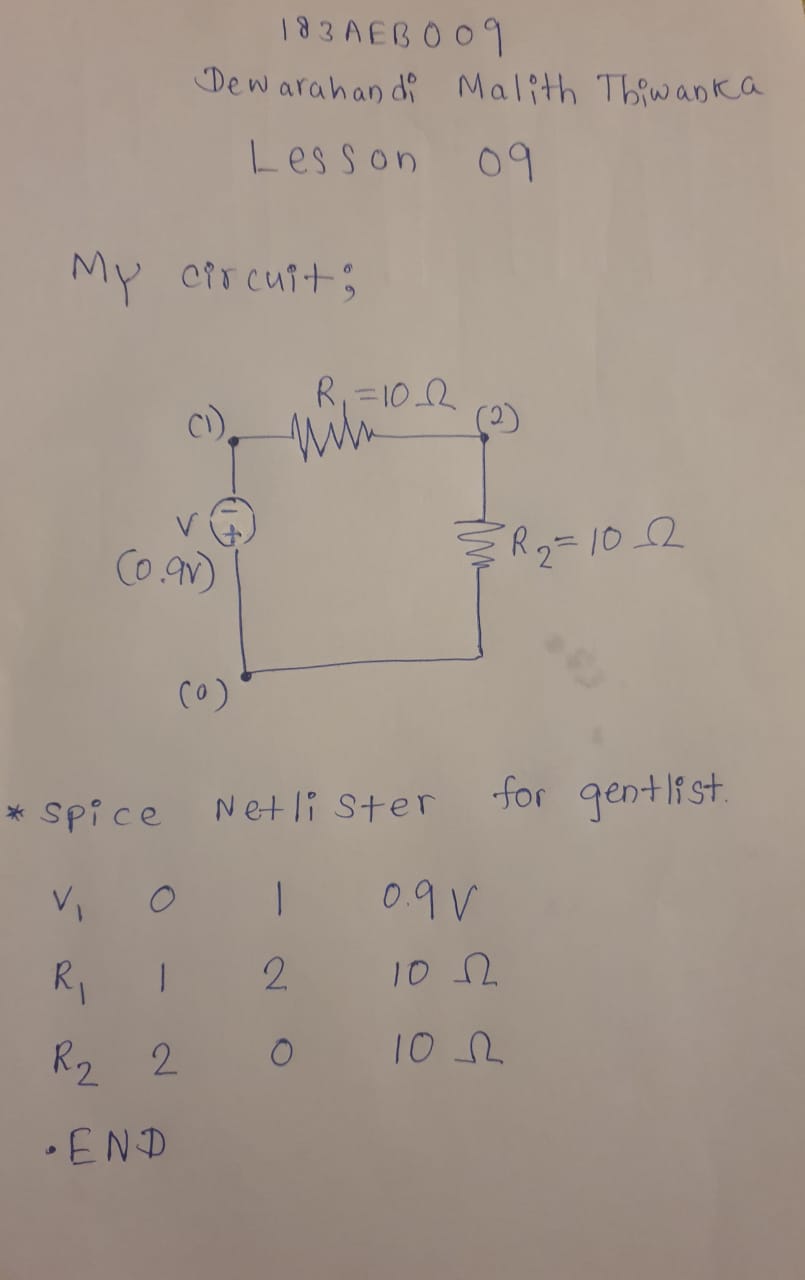 183AEB009
Dewarahandi Malith Thiwanka
Lesson 09
My circuit;
R1=10 Ω
(1)
(2)
V
- +
(0.9V)
R2=10 Ω
(0)
* Spice Netlister for gentlist.
V1 0 1 0.9 V
R1 1 2 10 Ω
R2 2 0 10 Ω
.END